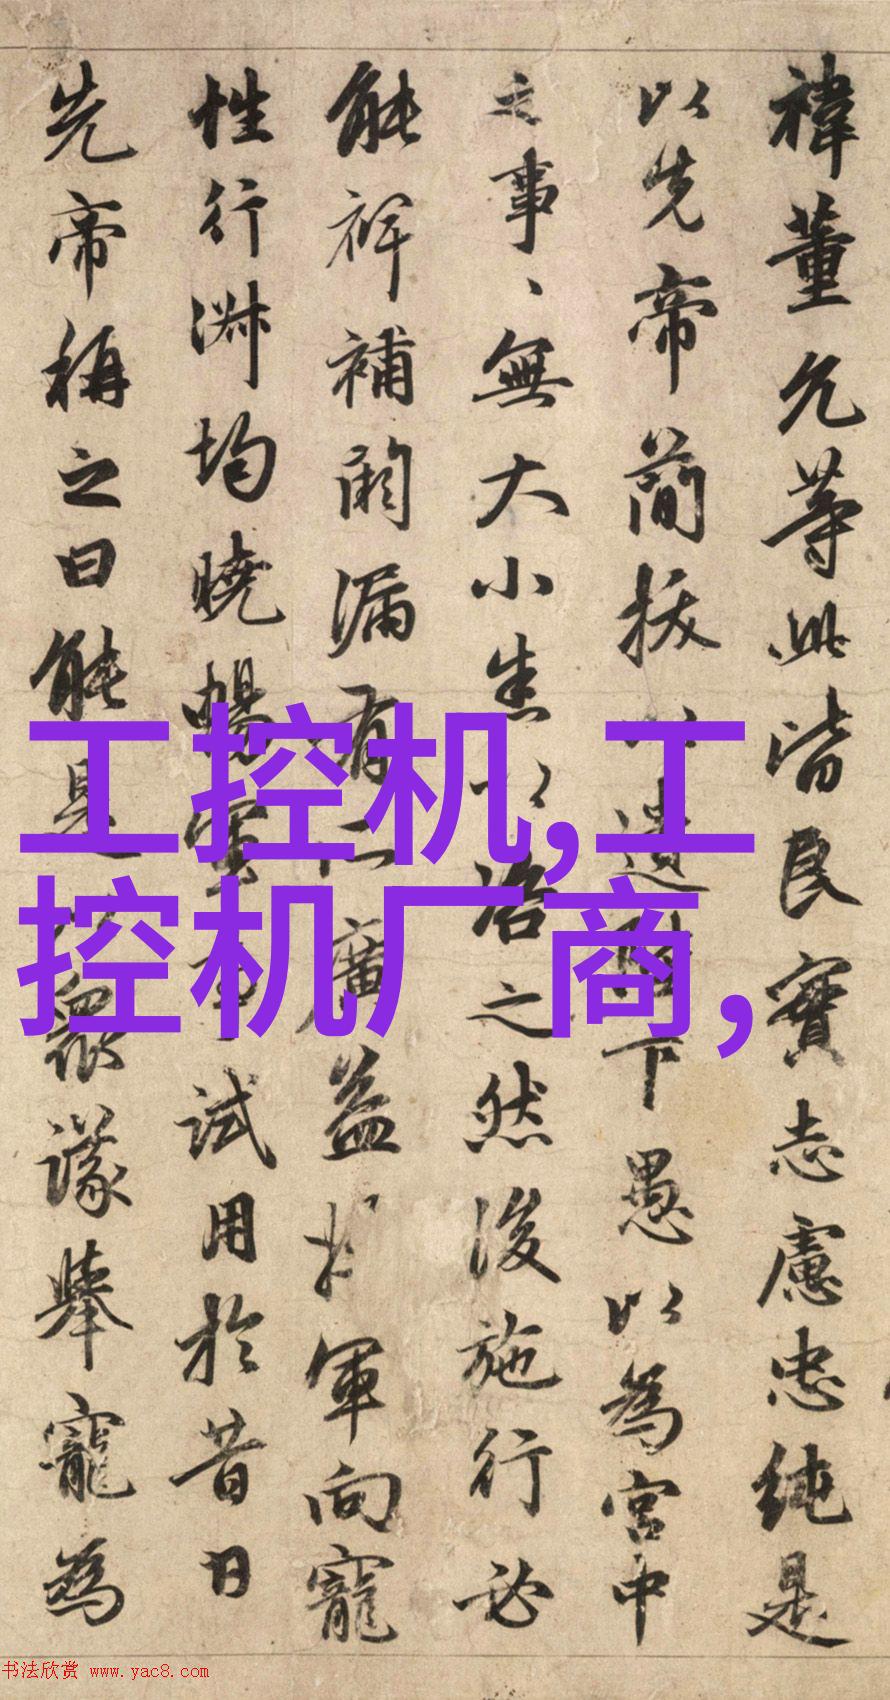 禕董允等此皆良實志慮忠純是
以先帝簡拔以遺陛下愚以為宮中
之事〻無大小悉以咨之然後施行必
能裨補闕漏有廣益軍向寵
性行淑均曉暢軍試用於昔日
先帝稱之曰能是以眾議舉寵為
工控机,工
控机厂商,
书法欣赏 www.yac8.com